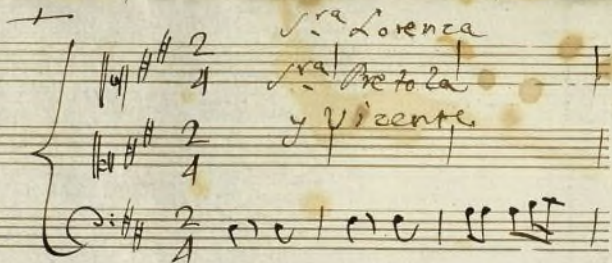 Sra Lorenza
Sra Pretola
y Vizente
2
4
2
4
2
4